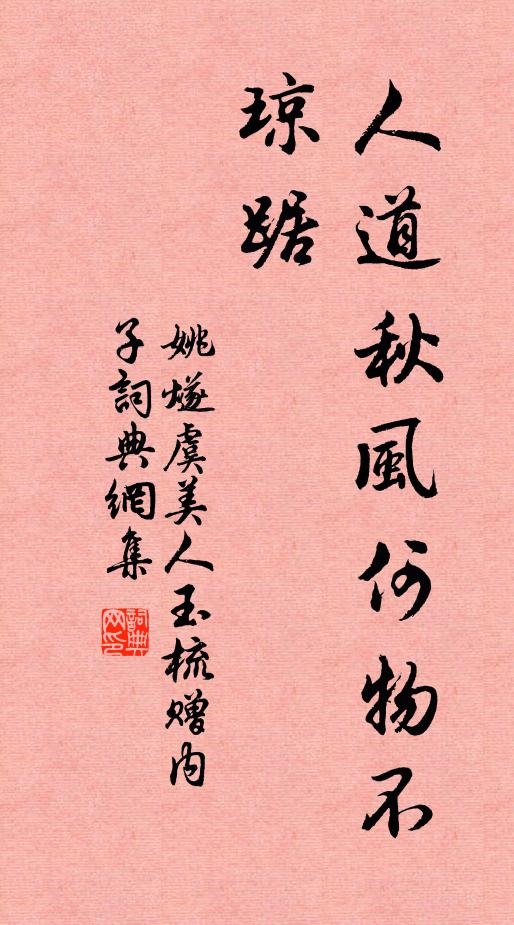 人道秋風何物不
琼踞
姚燧虞美人玉梳赠内
子詞典網集
詞典
网印